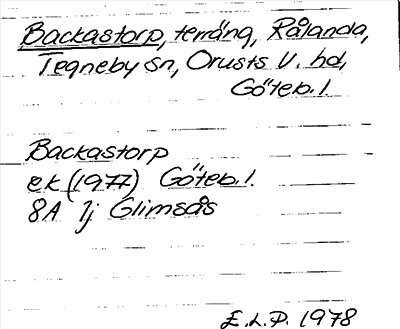 Backastorp, terräng, Rålanda,
Tegneby sn, Orusts V. hd,
Göteb. l.
Backastorp
ek (1977) Göteb. l.
8A 7j Glimsås
E.L.P. 1978